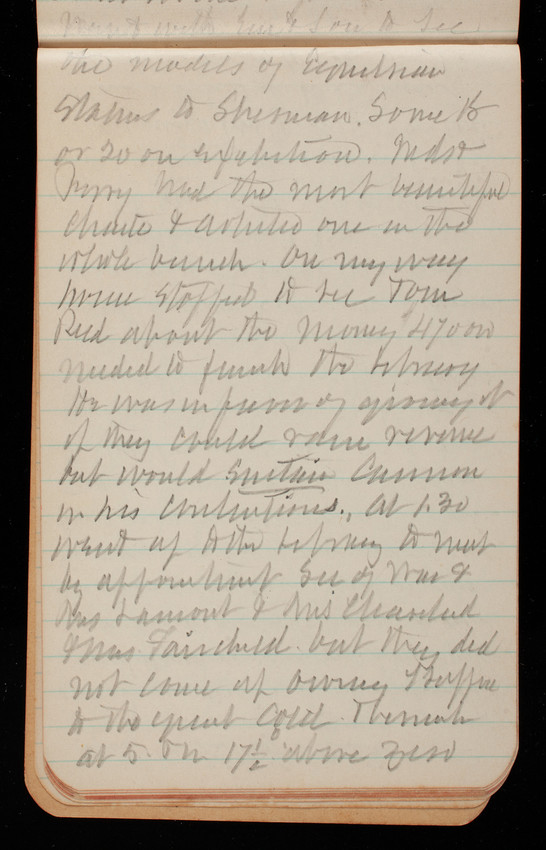 the models of Equestrian
Statues to Sherman. Some 15
or 20 on exhibition.
Perry had the most beautiful
chaste & artistic one in the
whole bunch. On my way
home stopped to see Tom
Reed about the money
needed to finish the Library
He was in favor of giving it
if they could raise revenue
but would sustain Cannon
in his contentions., at 1.30
went up to the Library to meet
by appointment Sec of War &
Mrs Lamont & Mrs Cleaveland
& Mrs Fairchild. but they did
not come up owing I suppose
to the great Cold. Thermom
at 5. 17½ above zero